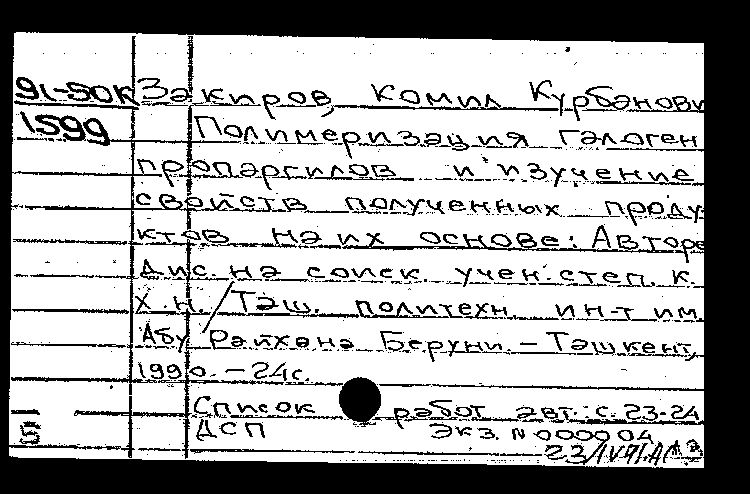 91-50К Закиров, Комил Курбанови
1599 Полимеризация галоген
пропаргилов и изучение
свойств полученных проду-
ктов на их основе: Авторе
дис. на соиск. учен. степ. к.
х.н. / Таш. политехн. ин-т им.
Абу Райхана Беруни. - Ташкент,
1990. - 24с.
Список работ авт.: с. 23-24
5 ДСП Экз. N 000004
23/IV91.